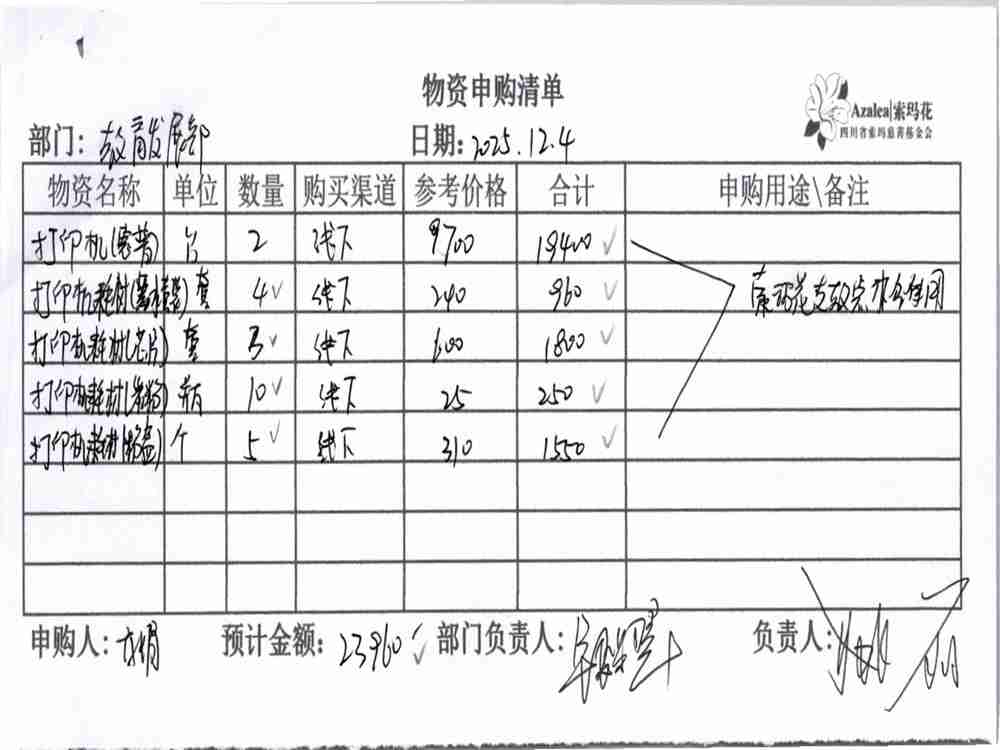 物资申购清单
Azalea|索玛花
四川省索玛慈善基金会
部门：教育发展部 日期：2025.12.4
物资名称 单位 数量 购买渠道 参考价格 合计 申购用途\备注
打印机(爱普) 台 2 线下 9700 19400
打印机耗材 套 4 线下 240 960
索玛花支教点办公使用
打印机耗材(芯片) 套 3 线下 600 1800
打印机耗材(粉) 瓶 10 线下 25 250
打印机耗材 个 5 线下 310 1550
申购人： 预计金额：23960 部门负责人： 负责人：